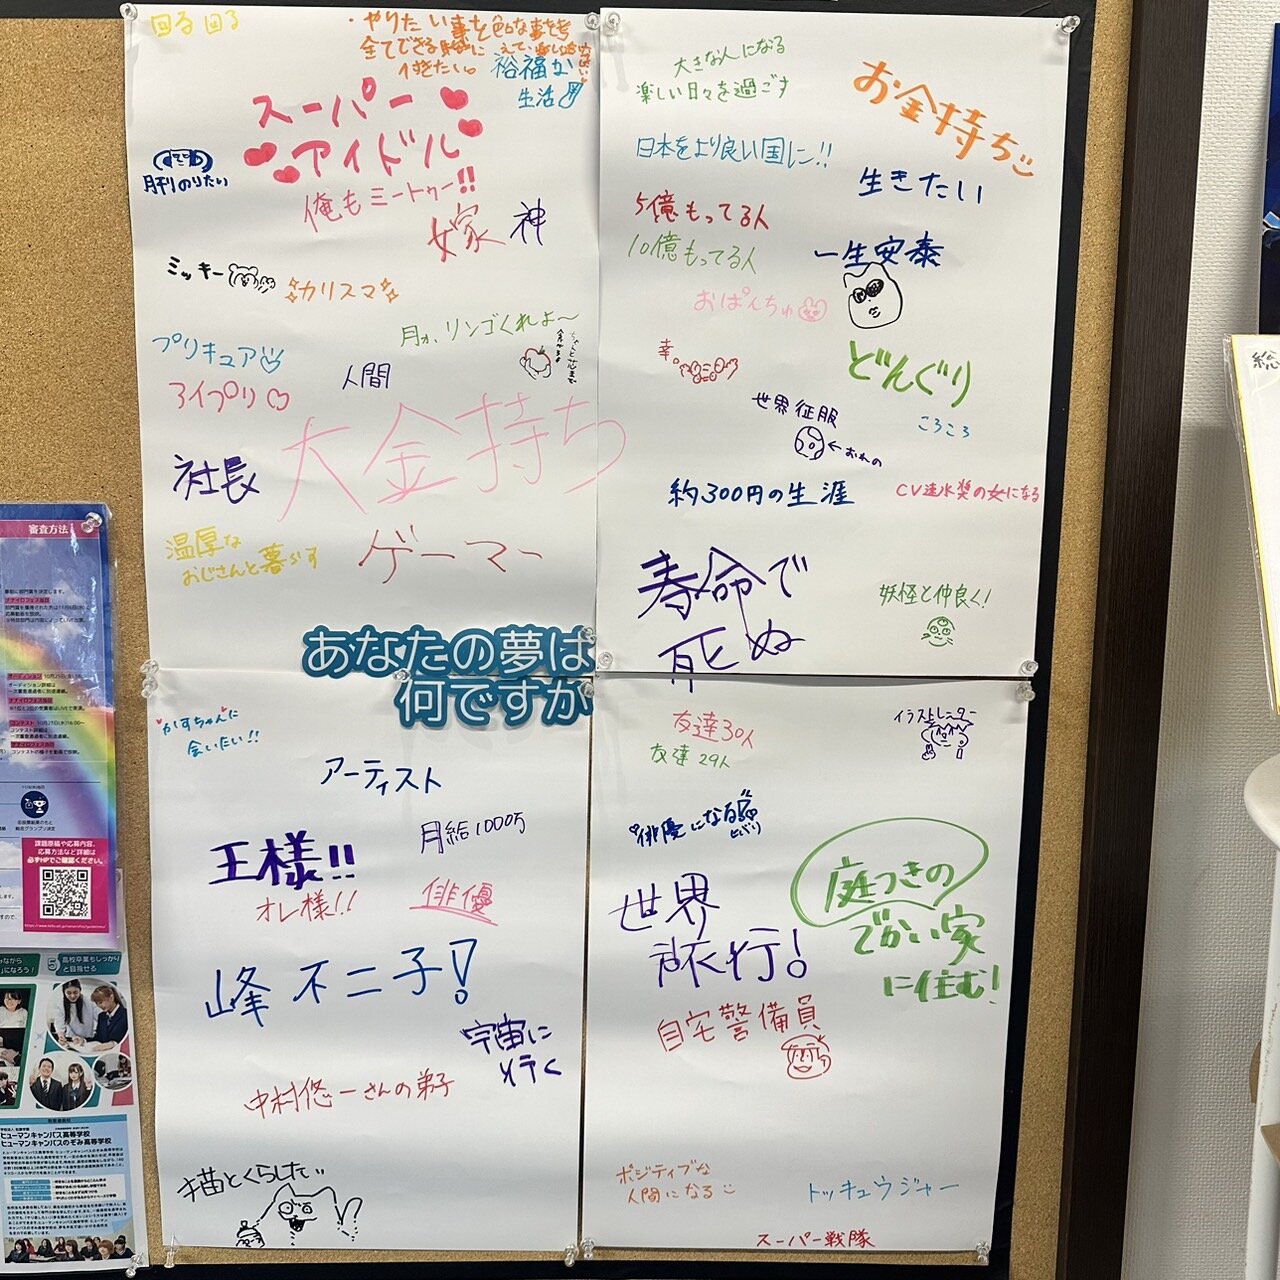 回る回る
・やりたい事と色々な事を考
全てできる
行きたい。
裕福な
生活
スーパー
アイドル
俺もミートゥー!!
嫁
神
のりたい
ミッキー
カリスマ
プリキュア
アイプリ
人間
リンゴくれよ〜
大金持ち
社長
温厚な
おじさんと暮らす
ゲーマー
大きな人になる
楽しい日々を過ごす
お金持ち
日本をより良い国に!!
生きたい
5億もってる人
10億もってる人
一生安泰
おぱんちゅ
幸。
どんぐり
世界征服
←おれの
ころころ
約300円の生涯
CV速水奨の女になる
寿命で
死ぬ
妖怪と仲良く!
あなたの夢は
何ですか
かすちゃんに
会いたい!!
アーティスト
王様!!
オレ様!!
月給1000万
俳優
峰不二子!
宇宙に
行く
中村悠一さんの弟子
猫とくらしたい
友達30人
友達29人
イラストレーター
俳優になる
世界
旅行!
庭つきの
でかい家
に住む!
自宅警備員
ポジティブな
人間になる
トッキュウジャー
スーパー戦隊
審査方法
オーディション
コンテスト
課題原稿や応募内容、
応募方法など詳細は
必ずHPでご確認ください。
5
高校卒業もしっかり
と目指せる
ヒューマンキャンパス高等学校
ヒューマンキャンパスのぞみ高等学校